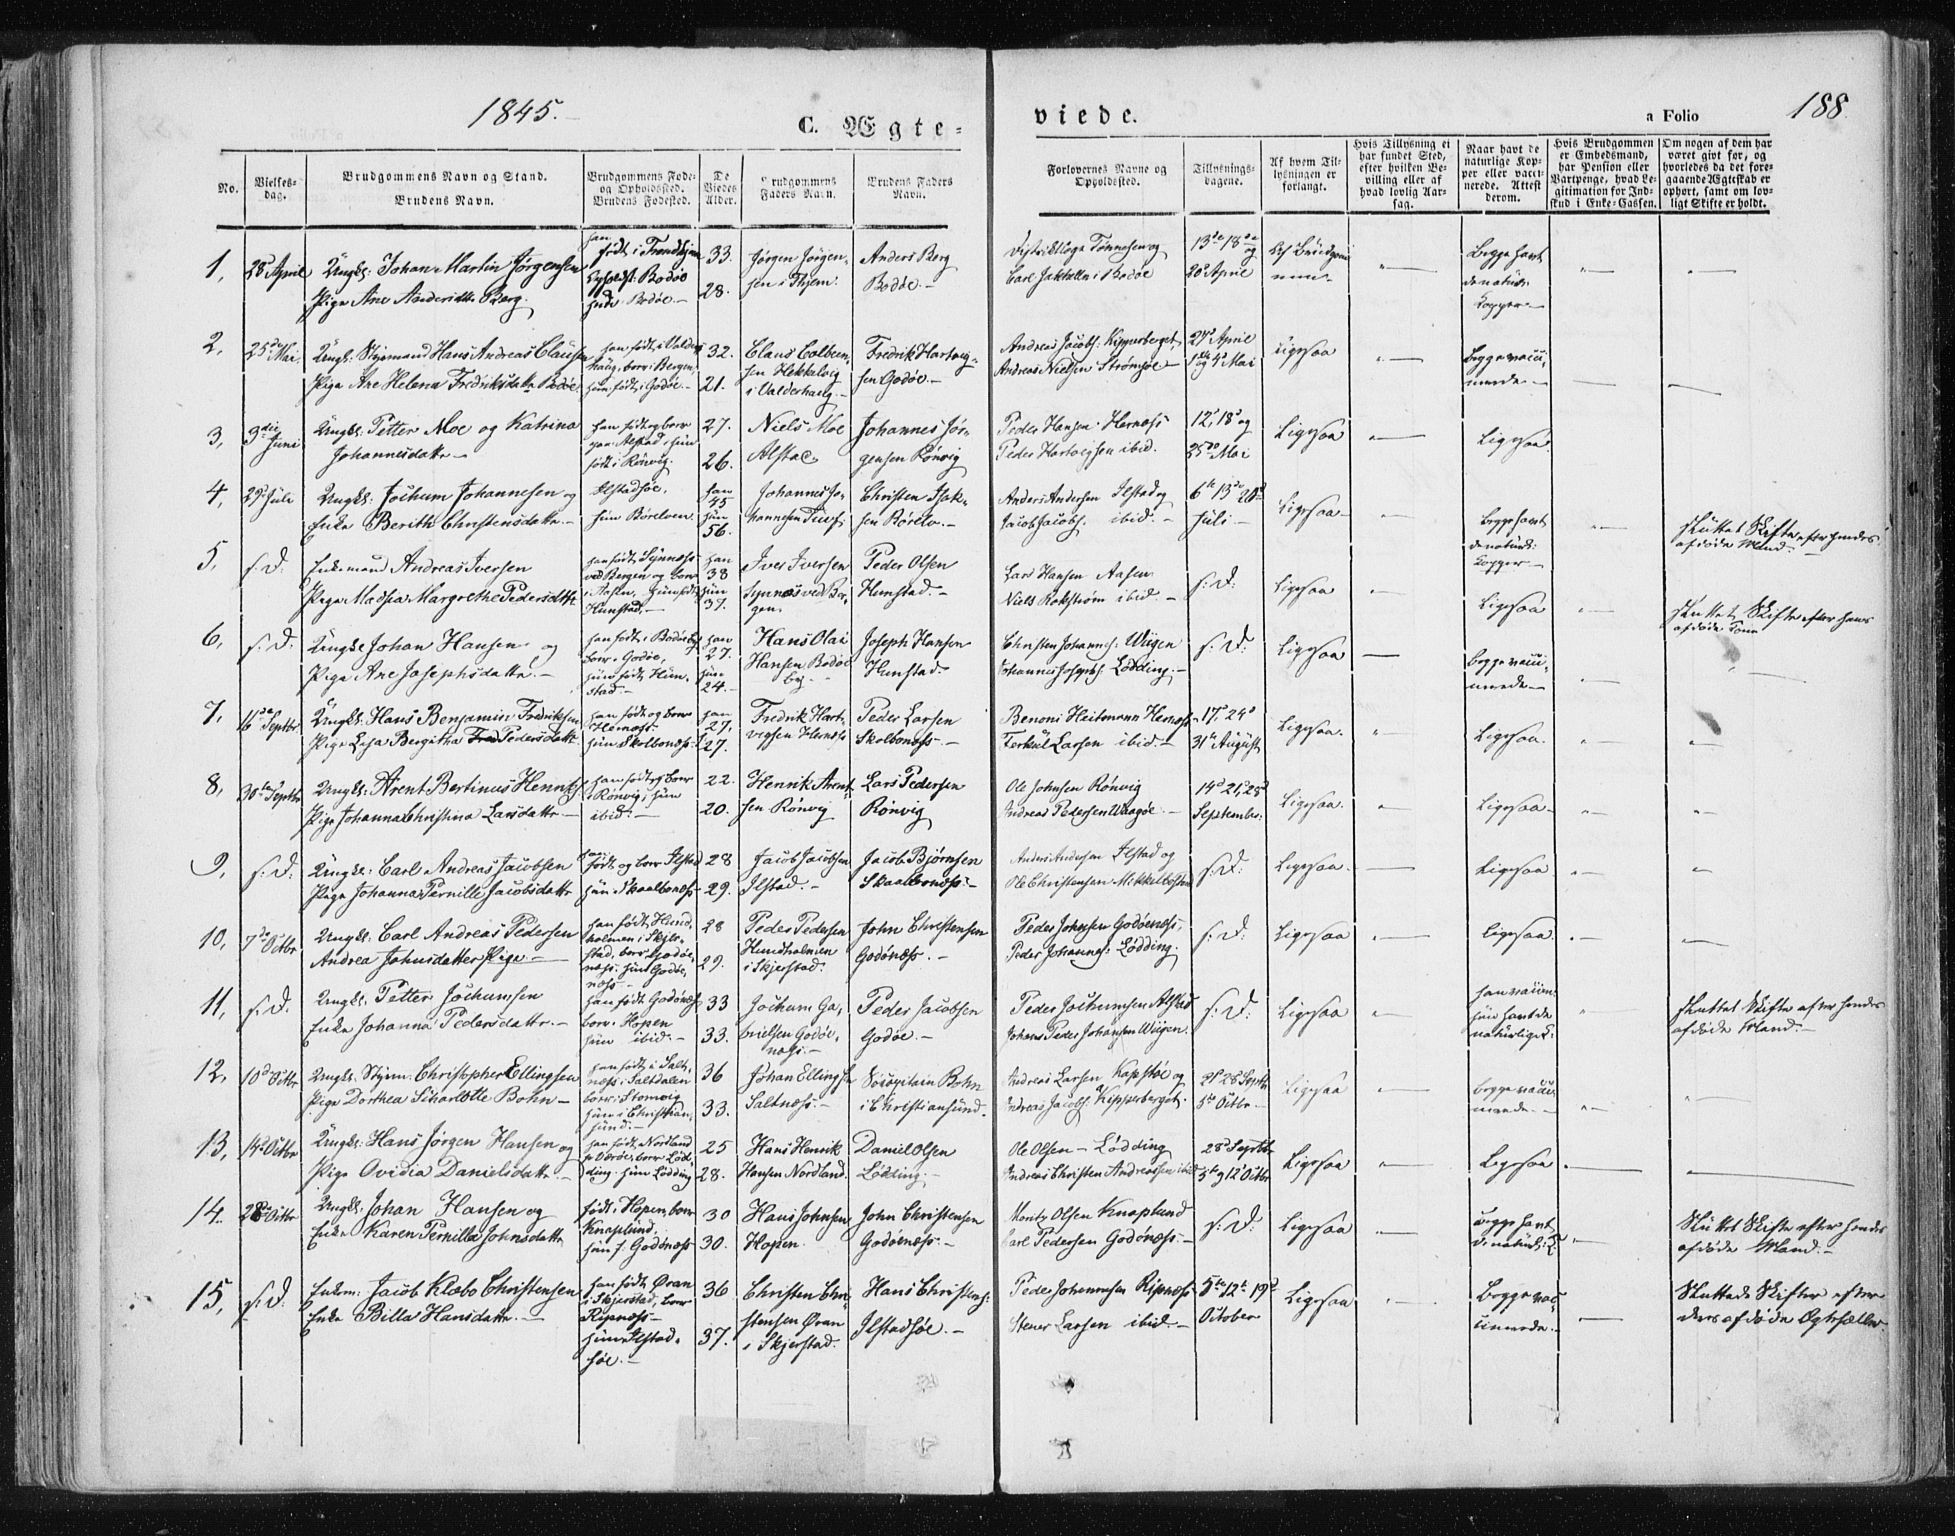 1845.
C. Ægte-
viede.
a Folio
188.
No.
Vielses-
dag.
Brudgommens Navn og Stand.
Brudens Navn.
Brudgommens Føde-
og Opholdssted.
Brudens Fødested.
De
Viedes
Alder.
Brudgommens
Faders Navn.
Brudens Faders
Navn.
Forlovernes Navne og
Opholdssted.
Tillysnings-
dagene.
Af hvem Til-
lysningen er
forlangt.
Hvis Tillysning ei
har fundet Sted,
efter hvilken Be-
villing eller af
hvad lovlig Aar-
sag.
Naar havt de
naturlige Kop-
per eller vacci-
nerede. Attest
derom.
Hvis Brudgommen
er Embedsmand,
har Pension eller
Vartpenge, hvad Le-
gitimation for Ind-
skud i Enke-Cassen.
Om nogen af dem har
været givt før, og
hvorledes da det fore-
gaaende Ægteskab er
ophørt, samt om lov-
ligt Skifte er holdt.
1, 28 April
Ungk: Johan Martin Jørgensen
Pige Ane Anderidtte Berg.
han
født i Trondhjem
Opholdst. Bodøe
hun Bodøe.-
33.
28.
Jørgen Jørgen-
sen i Thjem.
Anders Berg
Bodøe.-
Tønnesen og
Carl Jakhelln i Bodøe
13de 18de og
20de April
Begge havt
de naturl:
Kopper-
2, 25de Mai
Ungk: Styrmand Hans Andreas Clausen
Pige Ane Helena Fredriksdatt. Bodøe
han født i Valder
haug, boer i Bergen,
hun født i Godøe-
32.
21.
Claus Colben-
sen Hekkelvig
i Valderhaug.-
Fredrik Hartvig-
sen Godøe.-
Andreas Jacobs: Kipperberget,
Andreas Nielsen Strømsøe-
27de April
1ste og 4de Mai
Ligesaa
Begge vacci-
nerede.-
3, 3die Juni
Ungk: Petter Moe og Katrina
Johannesdattr-
han født og boer
paa Alstad, hun
født i Rønvig.
27.
26.
Niels Moe
Alstad
Johannes Jør-
gensen Rønvig
Peder Hansen Hernæss
Peder Hartvigsen ibid.
12, 18de og
25de Mai
Ligesaa
Ligesaa.
4, 29de Juli
Ungk: Jochum Johannesen og
Enke Berith Christensdattr-
Ilstadsøe.
hun Børelven.
han
45
hun
56.
Johannes Jo-
hannesen
Christen Isak-
sen Børelv.-
Anders Andersen Ilstad og
Jacob Jacobs. ibid.-
6te 13de 20de
Juli-
Ligesaa-
Begge havt
de naturl:
Kopper-
sluttet Skifte efter hendes
afdøde Mand.-
5, s: D:
Enkemand Andreas Iversen
Pige Madsea Margrethe Pedersdattr
han født Synnæss
ved Bergen og boer
i Aasen. hun født
Hunstad.-
han
38
hun
37.
Iver Iversen
Synnæs ved Ber-
gen.
Peder Olsen
Hunstad.-
Lars Hansen Aasen
Niels Rokstrøm ibid.-
s: D:
Ligesaa
Ligesaa
sluttet Skifte efter hans
afdøde Kone
6, s: D:
Ungk: Johan Hansen og
Pige Ane Josephsdattr.-
han født i Bodøe
boer Godøe,
hun født Hun-
stad.-
han
27.
hun
24.-
Hans Olai
Hansen Bodøe
Joseph Hansen
Hunstad.
Christen Johannes: Wiigen
Johannes Josephs: Lødding.-
s: D:
Ligesaa
Begge vacci-
nerede-
7, 16de Septbr
Ungk: Hans Benjamin Fredriksen
Pige Lesa Bergitha Fred Pedersdattr
han født og boer
Hernæss.
hun Skolbonæss.
han
27,
27.
Fredrik Hart-
vigsen Hernæss
Peder Larsen
Skolbonæss.-
Benoni Heitmann Hernæss
Terkul Larsen ibid.-
17de 24de
31te August
Ligesaa.
Ligesaa.
8, 30te Septbr
Ungk: Arent Bertinus Henriks:
Pige Johanna Christina Larsdattr.-
han født og boer
i Rønvig, hun
ibid.-
22.
20.
Henrik Arent-
sen Rønvig
Lars Pedersen
Rønvig
Ole Johnsen Rønvig
Andreas Pedersen Waagøe.-
14de 21, 28de
September.
Ligesaa.
Ligesaa-
9, s: D:
Ungk: Carl Andreas Jacobsen
Pige Johanna Pernille Jacobsdattr
født og boer Ilstad
hun Skaalbonæss-
28
29.
Jacob Jacobsen
Ilstad.-
Jacob Bjørnsen
Skaalbonæss.-
Anders Andersen Ilstad og
Ole Christensen Mikkelbostad
s: D:
Ligesaa.
Ligesaa
10, 7de Octbr
Ungk: Carl Andreas Pedersen
Andrea Johnsdatter Pige-
han født Hund-
holmen i Skjer-
stad, boer Godøe-
næss. hun Godøe-
næss-
28
29.
Peder Pedersen
Hundholmen
i Skjerstad.
John Christensen
Godønæss.-
Peder Johnsen Godøenæss,
Peder Johannes: Lødding.
s: D:
Ligesaa
Ligesaa.
11, s: D:
Ungk: Petter Jochumsen
Enke Johanna Pedersdattr.-
han født Godønæss
boer Hopen
hun ibid.-
33
33.
Jochum Ga-
brielsen Godøe-
næss.-
Peder Jacobsen
Godøe.-
Peder Jochumsen Alstad
Johans Peder Johansen Wiigen.
s: D:
Ligesaa
han vaccin.
hun havt de
naturlige K:
sluttet Skifte efter hendes
afdøde Mand.-
12, 10de Octbr
Ungk: Styrm: Christopher Ellingsen
Pige Dorthea Scharlotte Bohn-
han født i Salt-
næss i Saltdalen
boer Stomvig
hun i Christian-
sund.-
36
33.
Johan Ellings
Saltnæss.-
Bohn
i Christiansund.
Andreas Larsen Kopstøe og
Andreas Jacobs. Kipperberget.
21 28 Septbr
5te Octbr.-
Ligesaa
Begge vacci-
nerede.-
13, 14de Octbr
Ungk: Hans Jørgen Hansen og
Pige Ovidia Danielsdattr.-
han født Nordland
boer Lød-
ding. hun Lødding
25
28.
Hans Henrik
Hansen Nordland.
Daniel Olsen
Lødding.-
Ole Olsen- Lødding
Andreas Christen Andreassen ibid
28de Septbr
5te og 12 Octbr
Ligesaa
Ligesaa
14. 28 Octbr
Ungk: Johan Hansen og
Enke Karen Pernilla Johnsdattr
født: Hopen, boer
Knaplund.
hun f. Godønæss
30
30.
Hans Johnsen
Hopen.
John Christensen
Godøenæss.-
Moritz Olsen Knaplund
Carl Pedersen Godønæss.-
s: D:
Ligesaa
Begge havt
de naturl: K:
Sluttet Skifte efter hendes
afdøde Mand.-
15, s: D:
Enkem: Jacob Klæbo Christensen
Enke Billa Hansdattr.-
han født Øran
i Skjerstad, boer
Ripnæss-
hun Ilstad-
søe.-
36
37.
Christen Chri-
stensen Øran
i Skjerstad.
Hans Christens:
Ilstadsøe.-
Peder Johannesen Ripnæss
Stener Larsen ibid.-
5te 12te 19de
October
Ligesaa
Begge vac-
cinerede.-
Sluttede Skifter efter
deres afdøde Ægtefæller.